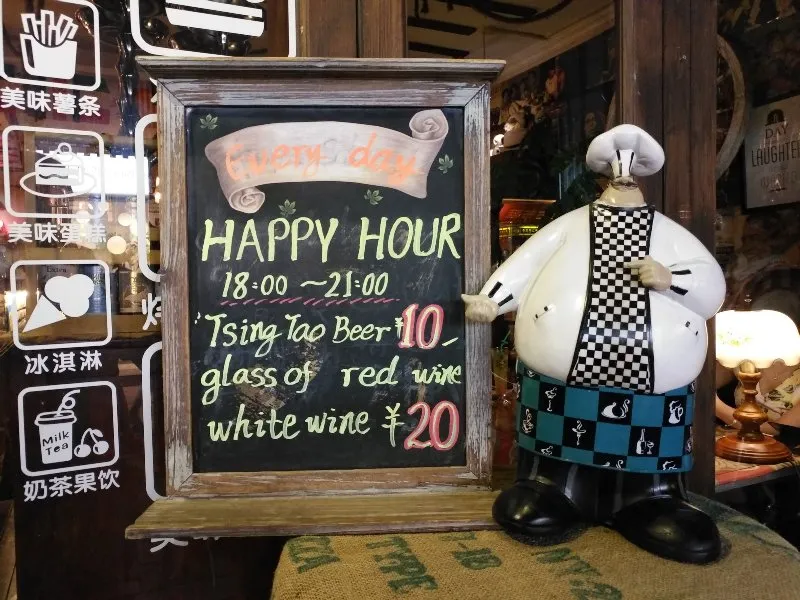 美味薯条
美味蛋糕
冰淇淋
Milk
Tea
奶茶果饮
Every day
HAPPY HOUR
18:00 ~21:00
Tsing Tao Beer ¥10
glass of red wine
white wine ¥20
LAUGHTER
TYPE